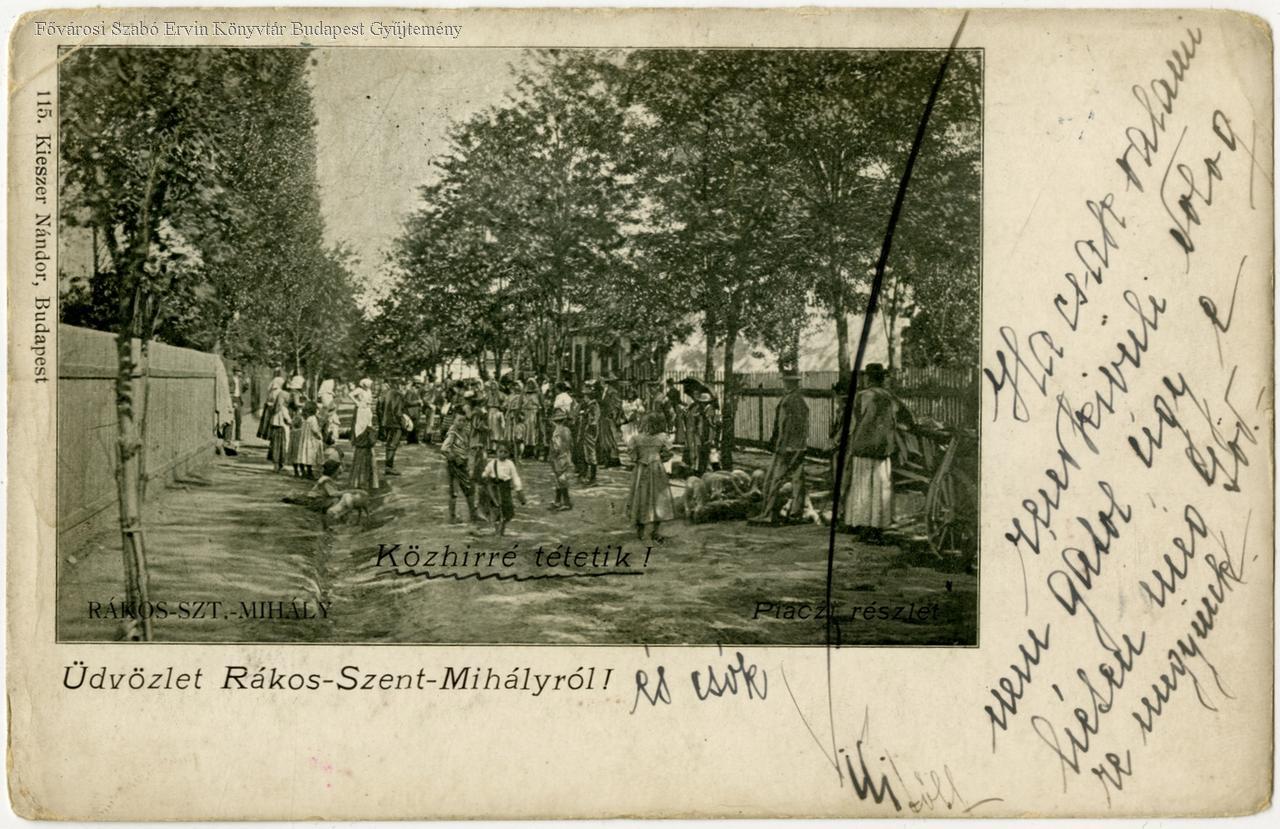 Fővárosi Szabó Ervin Könyvtár Budapest Gyűjtemény
115. Kieszer Nándor, Budapest
Közhirré tétetik!
RÁKOS-SZT.-MIHÁLY
Piaczi részlet
Üdvözlet Rákos-Szent-Mihályról!
és csók
Ha csak valami
kivüli dolog
nem gátol úgy e